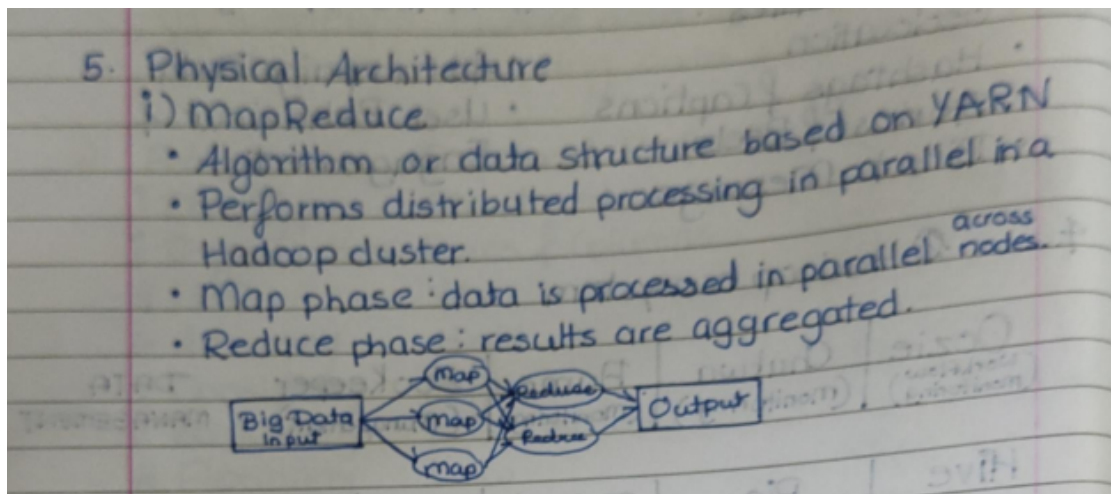 5. Physical Architecture
i) MapReduce
• Algorithm or data structure based on YARN
• Performs distributed processing in parallel in a
Hadoop cluster.
• Map phase : data is processed in parallel across nodes.
• Reduce phase : results are aggregated.
Big Data
Input
Map
Map
Map
Reduce
Reduce
Output